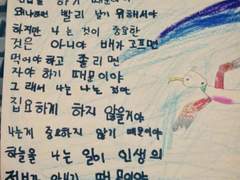 하기 때문이야
왜냐하면 빨리 날기 위해서야
하지만 나는 것이 중요한
것은 아니야 배가 고프면
먹어야 하고 졸리면
자야 하기 때문이야
그래서 나는 나는 것만
집요하게 하지 않을거야
나는게 중요하지 않기 때문이야
하늘을 나는 일이 인생의
전부가 아니기 때문이야